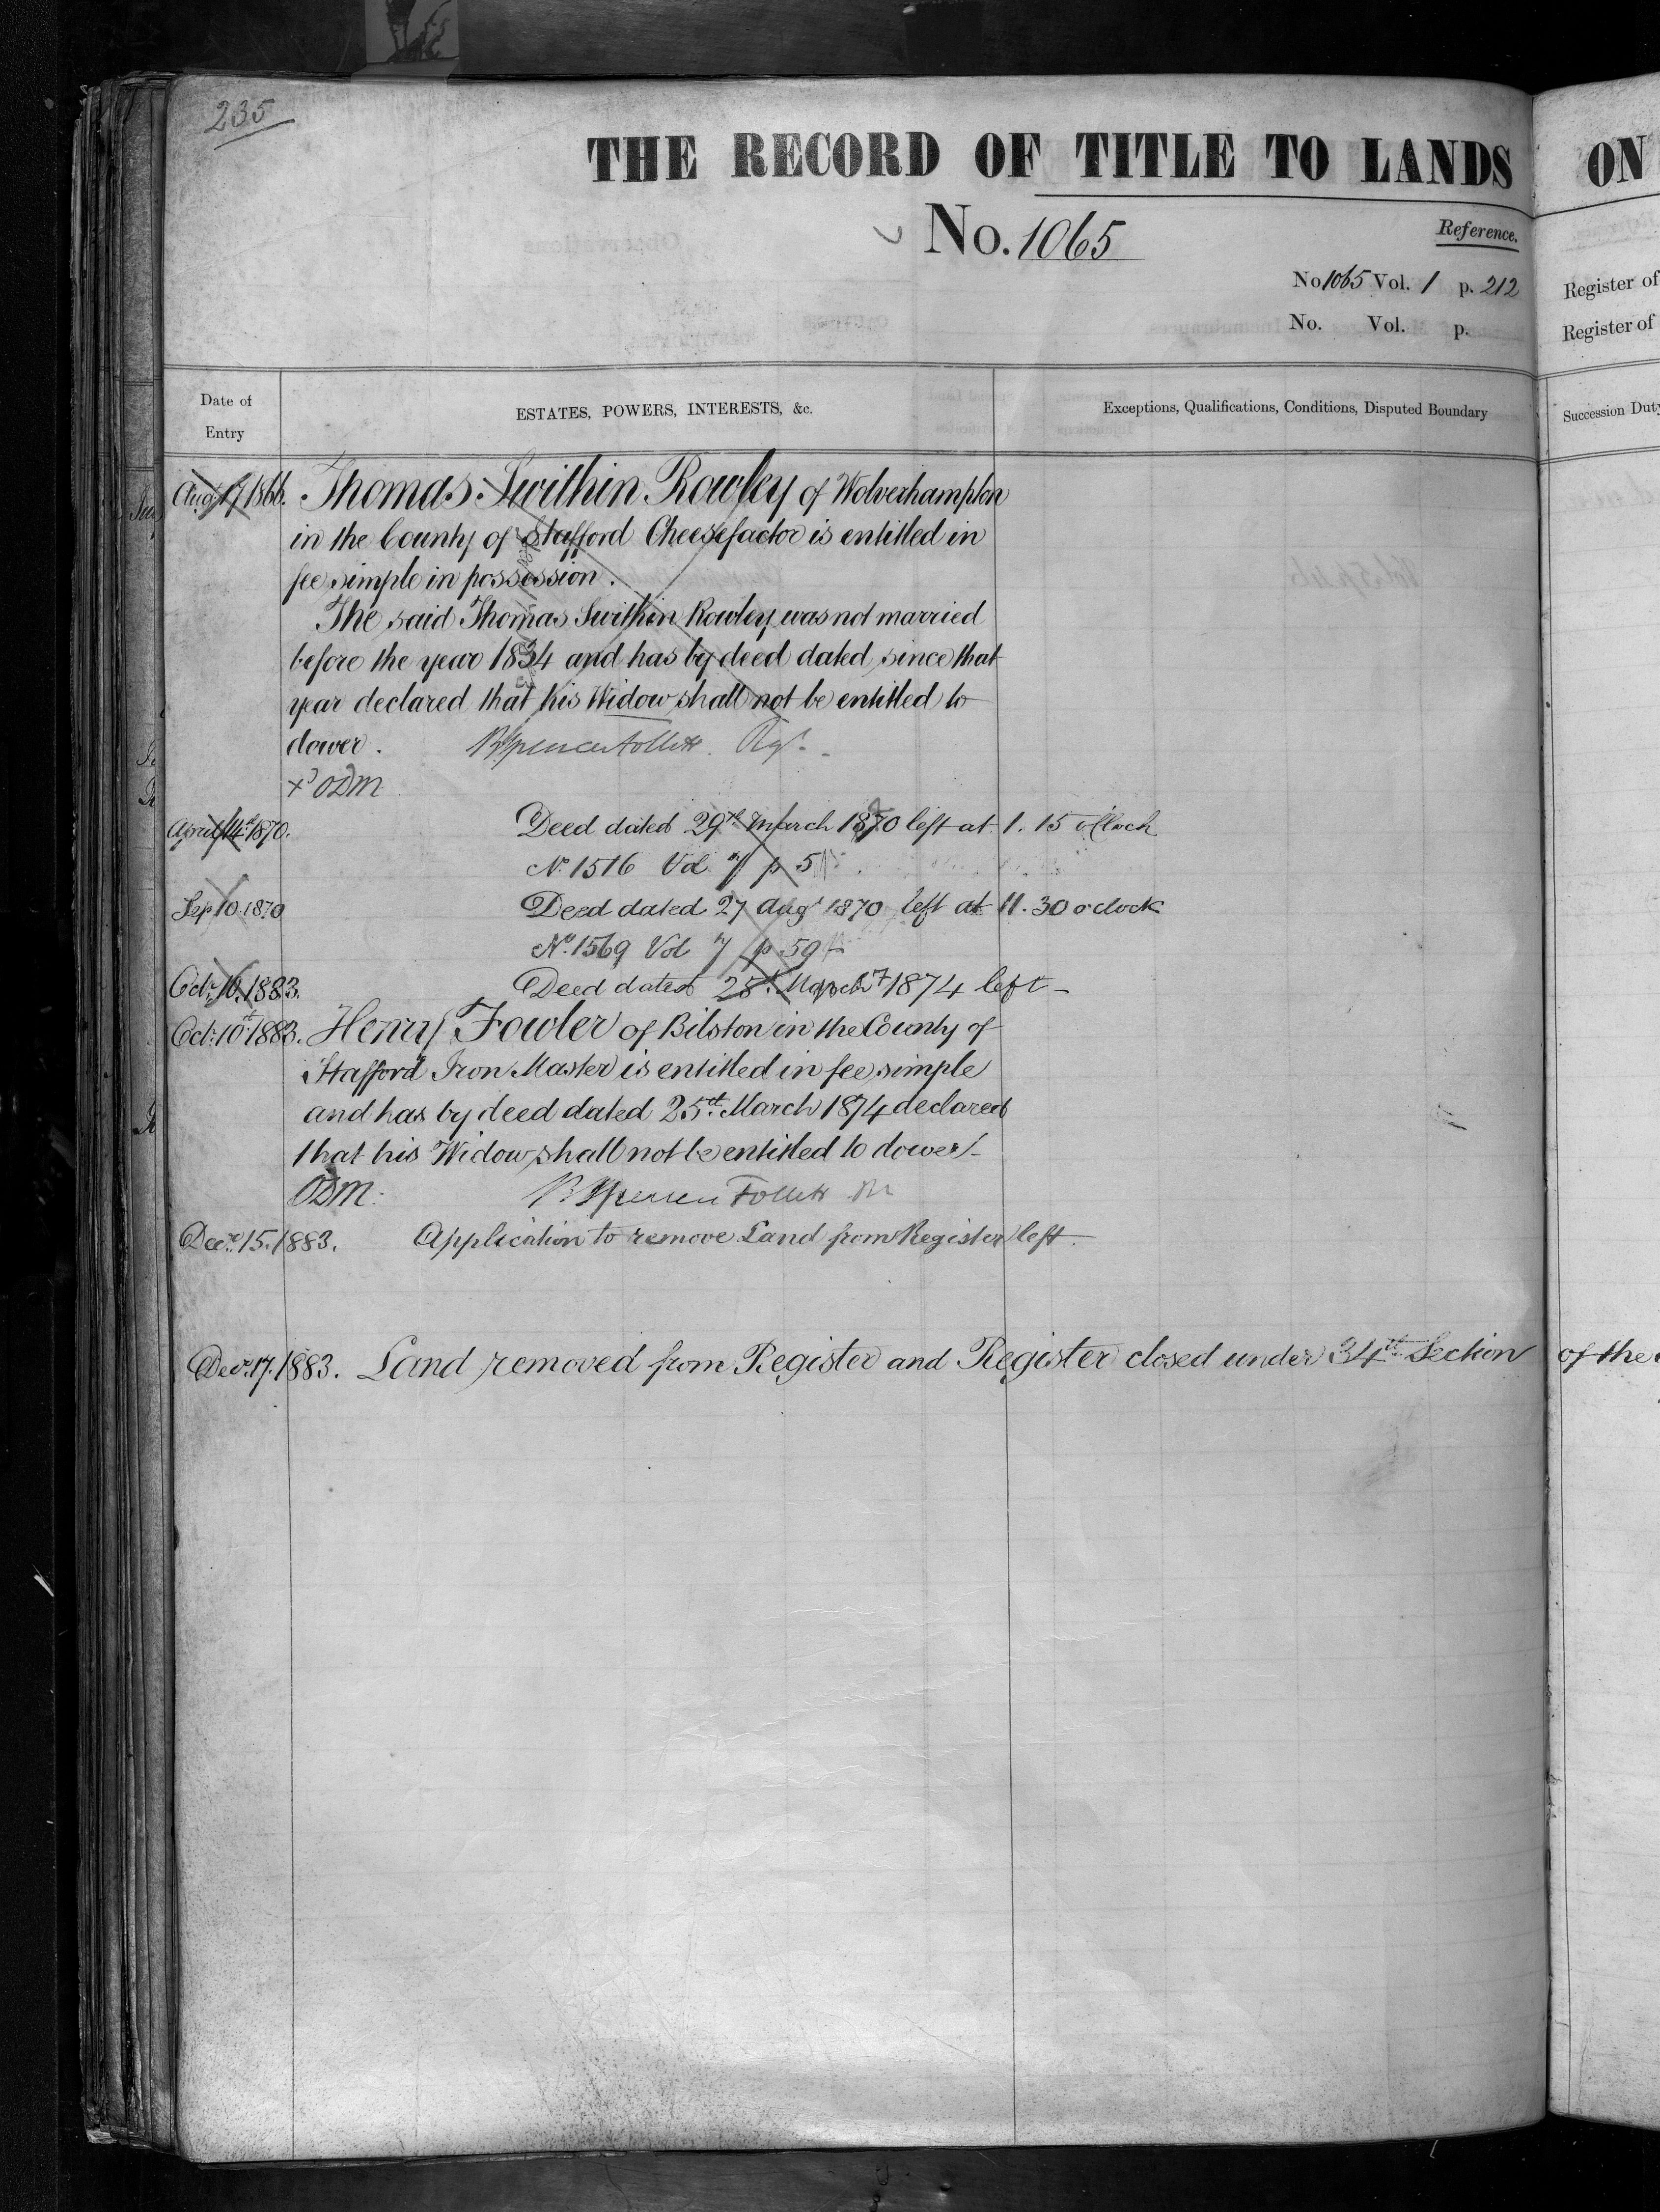 235
THE RECORD OF TITLE TO LANDS ON
No. 1065
Reference.
No 1065 Vol. 1 p. 212
Register of
No. Vol. p.
Register of
Date of Entry
ESTATES, POWERS, INTERESTS, &c.
Exceptions, Qualifications, Conditions, Disputed Boundary
Succession Duty
Augt 17 1866. Thomas Swithin Rowley of Wolverhampton
in the County of Stafford Cheesefactor is entitled in
fee simple in possession.
The said Thomas Swithin Rowley was not married
before the year 1834 and has by deed dated since that
year declared that his Widow shall not be entitled to
dower. B Spencer Follett Regr.
ODM
April 14th 1870. Deed dated 29th March 1870 left at 1.15 o'clock
No. 1516 Vol 7 p 5
Sep 10. 1870 Deed dated 27 Augt 1870 left at 11.30 o'clock
No. 1569 Vol 7 p. 59
Octr. 10. 1883. Deed dated 25th March 1874 left
Oct. 10th 1883. Henry Fowler of Bilston in the County of
Stafford Iron Master is entitled in fee simple
and has by deed dated 25th March 1874 declared
that his Widow shall not be entitled to dower.
ODM. B Spencer Follett
Decr. 15. 1883. Application to remove Land from Register left.
Decr. 17. 1883. Land removed from Register and Register closed under 34th Section of the